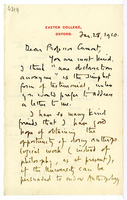 EXETER COLLEGE,
OXFORD.
Jan. 28, 1910.
Dear Professor
You are most kind.
I think "une déclaration
anonyme" is the simplest
form of testimonial, unless
you should prefer to address
a letter to me.
I have so many kind
friends that I have good
hope of obtaining the
opportunity of doing anthropo-
logical work (instead of
philosophy, as at present),
if the University can be
persuaded to